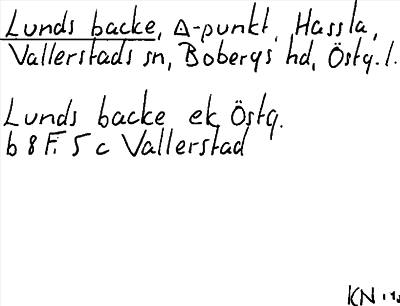 Lunds backe, Δ-punkt, Hassla,
Vallerstads sn, Bobergs hd, Östg. l.
Lunds backe ek Östg.
b 8 F. 5 c Vallerstad
KN